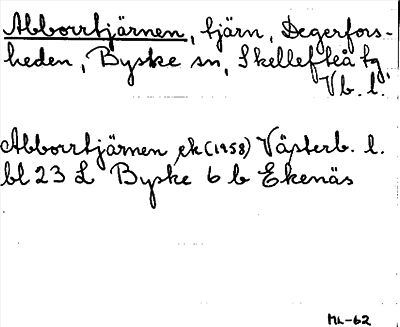 Abborrtjärnen, tjärn, Degerfors-
heden, Byske sn, Skellefteå tg
Vb. l.
Abborrtjärnen ek (1958) Västerb. l.
bl 23 L Byske 6 b Ekenäs
ML-62